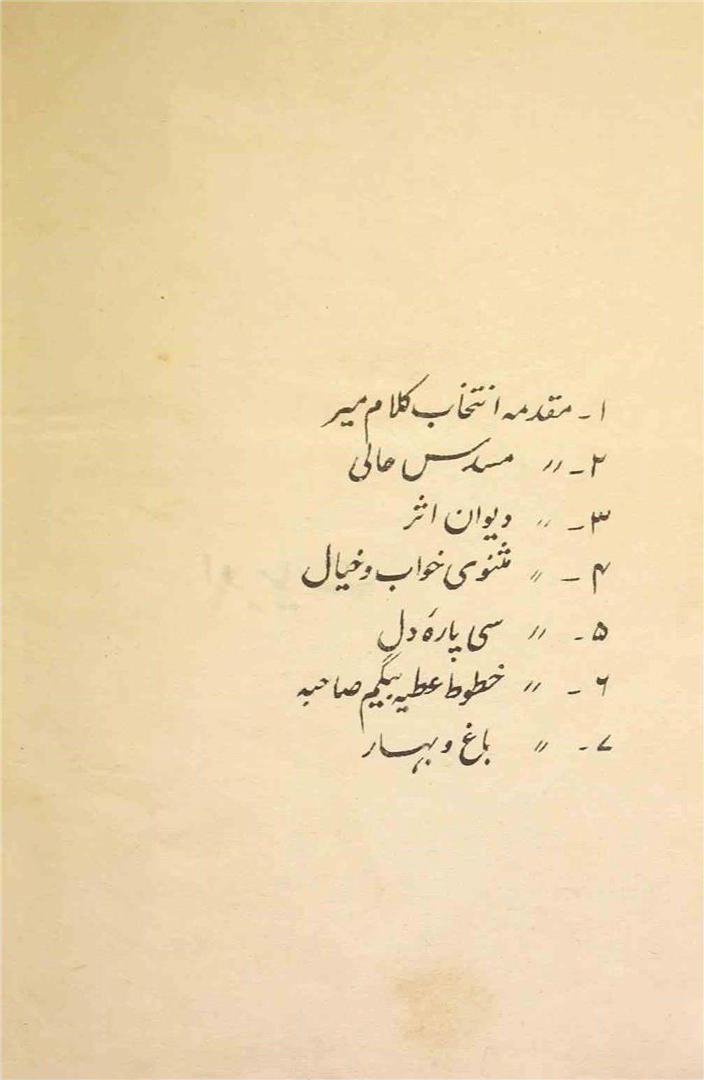 ۱ - مقدمہ انتخاب کلام میر
۲ - 〃 مسدس حالی
۳ - 〃 دیوان اثر
۴ - 〃 مثنوی خواب و خیال
۵ - 〃 سی پارۂ دل
۶ - 〃 خطوط عطیہ بیگم صاحبہ
۷ - 〃 باغ و بہار